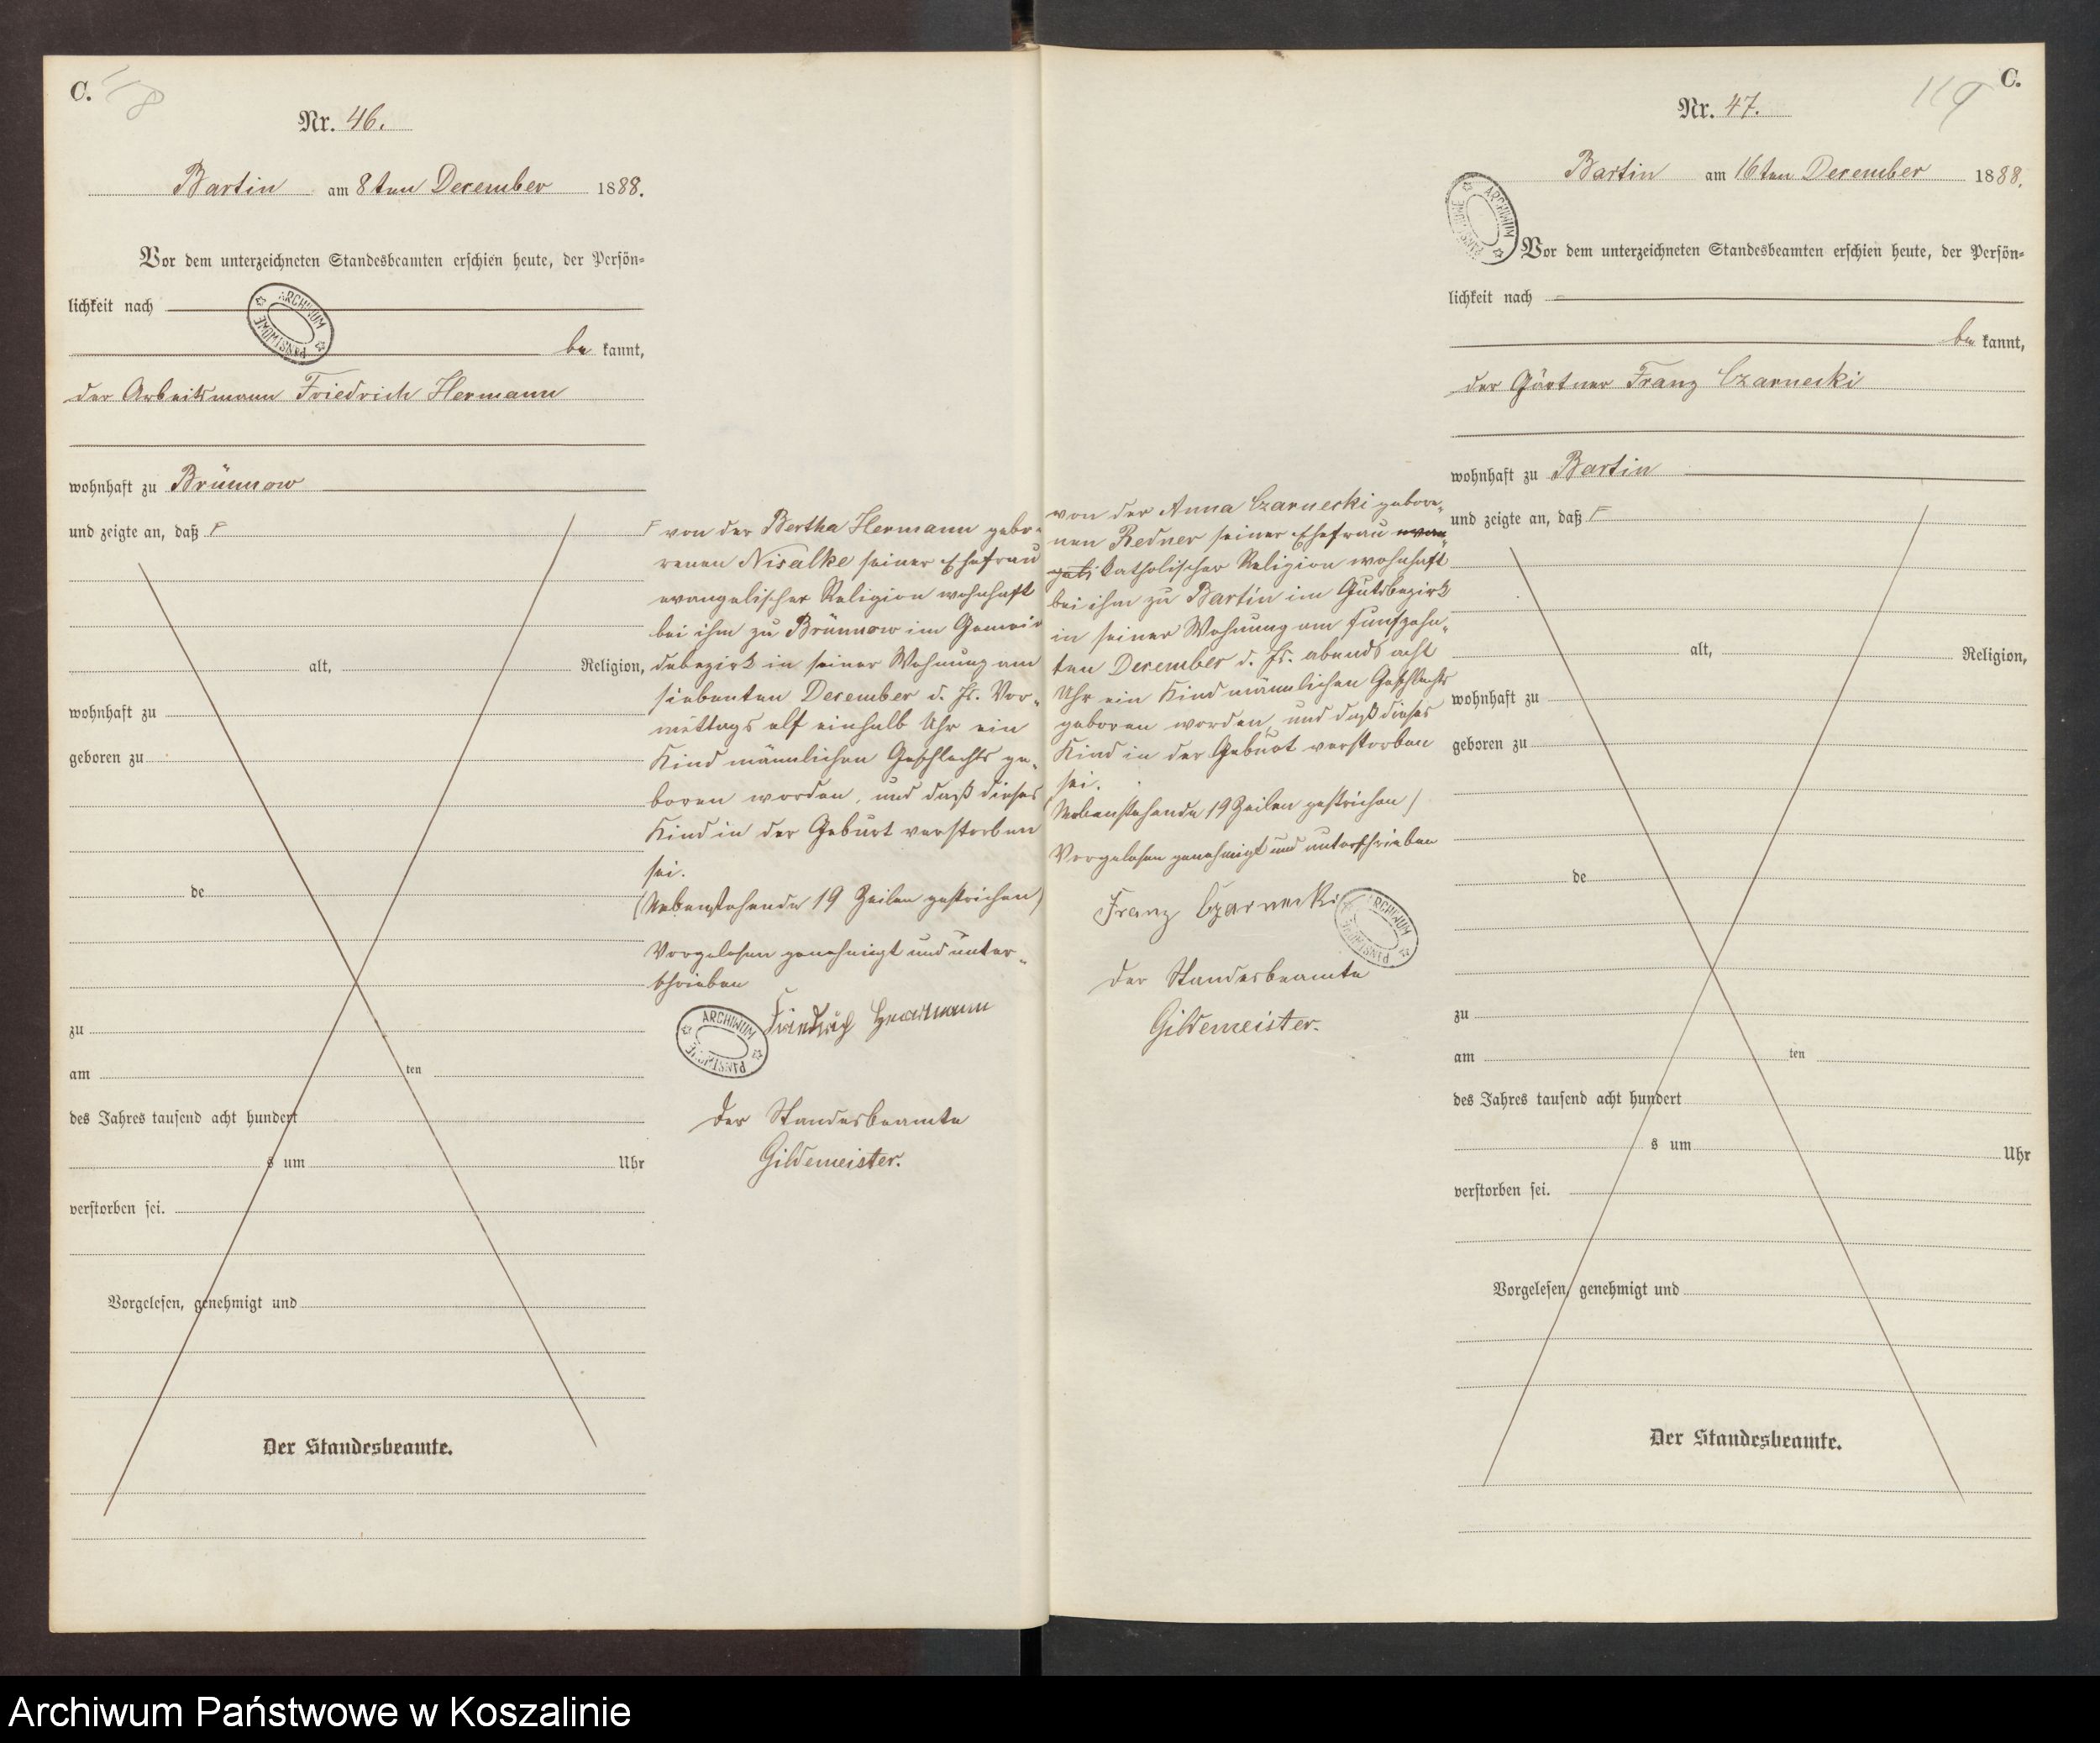 C.
118
Nr. 46.
Bartin am 8ten December 1888.
Vor dem unterzeichneten Standesbeamten erschien heute, der Persön-
lichkeit nach
be kannt,
der Arbeitsmann Friedrich Hermann
wohnhaft zu Brünnow
und zeigte an, daß F
alt, Religion,
wohnhaft zu
geboren zu
de
zu
am ten
des Jahres tausend acht hundert
s um Uhr
verstorben sei.
Vorgelesen, genehmigt und
Der Standesbeamte.
F von der Bertha Hermann gebo-
renen Nisalke seiner Ehefrau
evangelischer Religion wohnhaft
bei ihm zu Brünnow im Gemein
debezirk in seiner Wohnung am
siebenten December d. Js. Vor-
mittags elf einhalb Uhr ein
Kind männlichen Geschlechts ge-
boren worden, und daß dieses
Kind in der Geburt verstorben
sei.
(Nebenstehende 19 Zeilen gestrichen)
Vorgelesen genehmigt und unter-
schrieben
Friedrich Hermann
Der Standesbeamte
Gildemeister.
ARCHIWUM PAŃSTWOWE
C.
119
Nr. 47.
Bartin am 16ten December 1888.
Vor dem unterzeichneten Standesbeamten erschien heute, der Persön-
lichkeit nach
be kannt,
der Gärtner Franz Czarnecki
wohnhaft zu Bartin
und zeigte an, daß F
alt, Religion,
wohnhaft zu
geboren zu
de
zu
am ten
des Jahres tausend acht hundert
s um Uhr
verstorben sei.
Vorgelesen, genehmigt und
Der Standesbeamte.
von der Anna Czarnecki gebore-
nen Redner seiner Ehefrau evan-
geli katholischer Religion wohnhaft
bei ihm zu Bartin im Gutsbezirk
in seiner Wohnung am funfzehn-
ten December d. Js. abends acht
Uhr ein Kind männlichen Geschlechts
geboren worden, und daß dieses
Kind in der Geburt verstorben
sei.
(Nebenstehende 19 Zeilen gestrichen)
Vorgelesen genehmigt und unterschrieben
Franz Czarnecki
Der Standesbeamte
Gildemeister.
ARCHIWUM PAŃSTWOWE
Archiwum Państwowe w Koszalinie